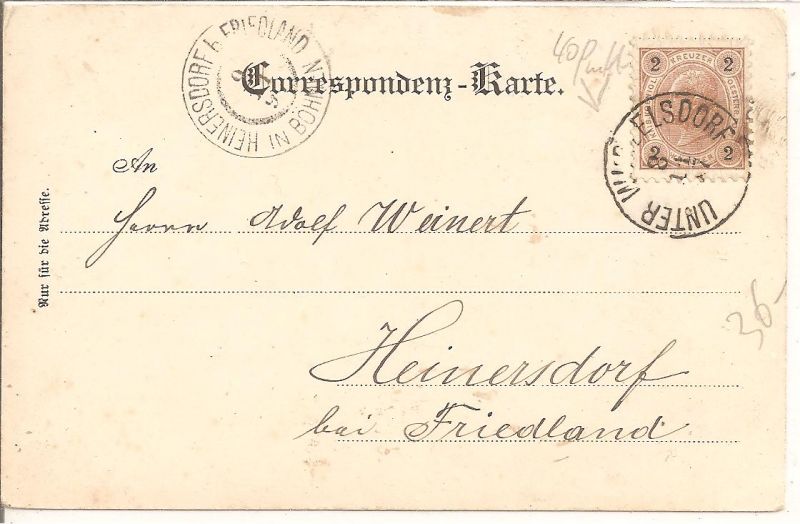 HEINERSDORF b FRIEDLAND IN BÖHMEN
Correspondenz-Karte.
40
2 KREUZER 2
2 2
UNTER ELSDORF
An
Herrn Adolf Weinert
Nur für die Adresse.
Heinersdorf
bei Friedland
36-